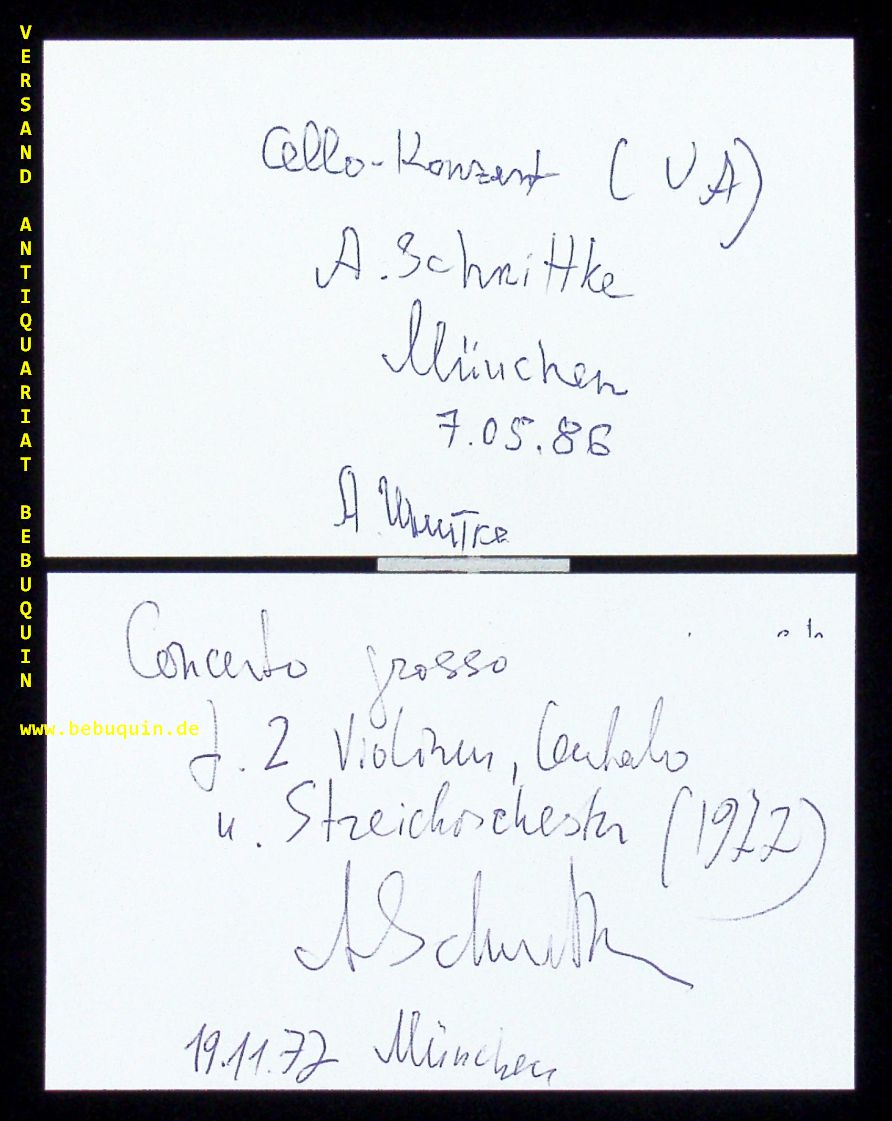 VERSAND ANTIQUARIAT BEBUQUIN
www.bebuquin.de
Cello-Konzert (UA)
A. Schnittke
München
7.05.86
А. Шнитке
Concerto grosso
f. 2 Violinen, Cembalo
u. Streichorchester (1977)
A Schnittke
19.11.77 München